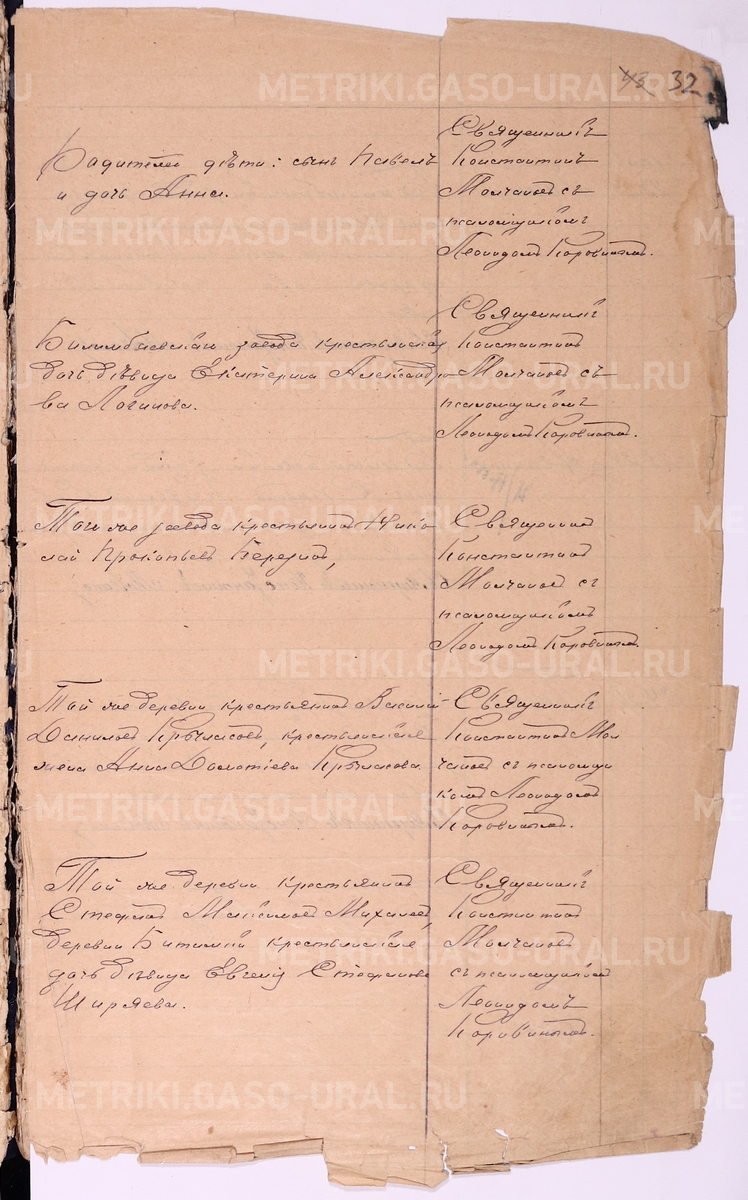 43 32
Родители дѣти: сынъ Павелъ
и дочь Анна.
Священникъ
Константинъ
Молчановъ съ
псаломщикомъ
Леонидомъ Коровинымъ.
Билимбаевскаго завода крестьянская
дочь дѣвица Екатерина Александро
ва Логинова.
Священникъ
Константинъ
Молчановъ съ
псаломщикомъ
Леонидомъ Коровинымъ.
Того же завода крестьянинъ Нико
лай Прокопьевъ
Священникъ
Константинъ
Молчановъ съ
псаломщикомъ
Леонидомъ Коровинымъ.
Той же деревни крестьянинъ Василій
Даниловъ Крычасовъ, крестьянская
жена Анна Крычасова
Священникъ
Константинъ Мол
чановъ съ псаломщи
комъ Леонидомъ
Коровинымъ.
Той же деревни крестьянинъ
Стефанъ Максимовъ Михалевъ,
деревни Битимки крестьянская
дочь дѣвица Евгенія Стефанова
Ширяева.
Священникъ
Константинъ
Молчановъ
съ псаломщикомъ
Леонидомъ
Коровинымъ.
METRIKI.GASO-URAL.RU